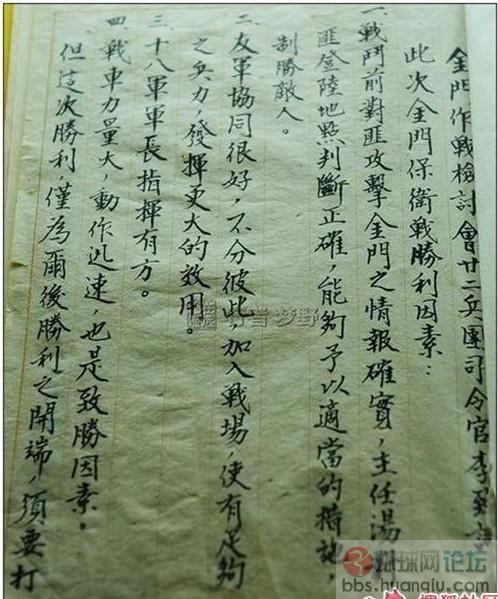 金門作戰檢討會廿二兵團司令官李
此次金門保衛戰勝利因素：
一、戰鬥前對匪攻擊金門之情報確實，主任湯
匪登陸地點判斷正確，能夠予以適當的措施，
制勝敵人。
二、友軍協同很好，不分彼此，加入戰場，使有足夠
之兵力，發揮更大的效用。
三、十八軍軍長指揮有方。
四、戰車力量大，動作迅速，也是致勝因素。
但這次勝利，僅為爾後勝利之開端，須要打
环球网论坛
bbs.huanqiu.com
搜狐社区